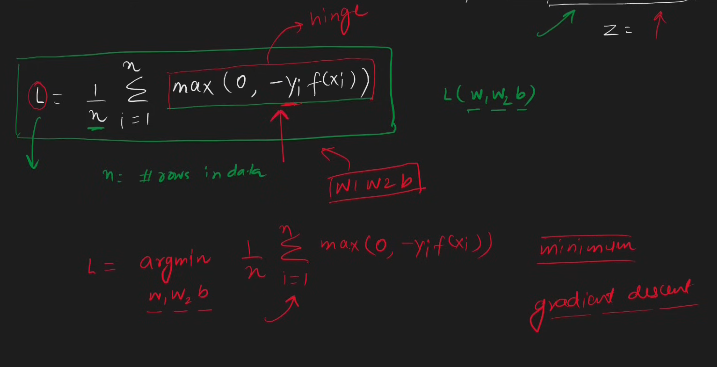 hinge
z =
L = 1/n n Σ i=1 max (0, -yi f(xi))
L(w1 w2 b)
n: # rows in data
w1 w2 b
L = argmin w1 w2 b 1/n n Σ i=1 max (0, -yi f(xi)) minimum
gradient descent